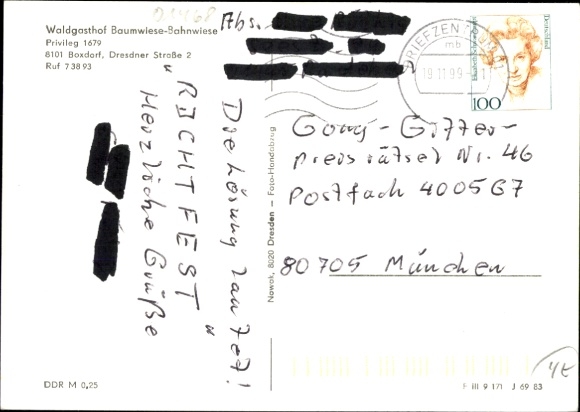 01468
Waldgasthof Baumwiese-Bahnwiese
Privileg 1679
8101 Boxdorf, Dresdner Straße 2
Ruf 73893
Abs.
BRIEFZENTRUM
mb
19.11.99
Deutschland
100
Die Lösung lautet!
„RICHTFEST"
Herzliche Grüße
Nowak, 8020 Dresden – Foto-Handabzug
Gong-Gitter-
preisrätsel Nr. 46
Postfach 400567
80705 München
DDR M 0,25
F III 9 171 J 69 83